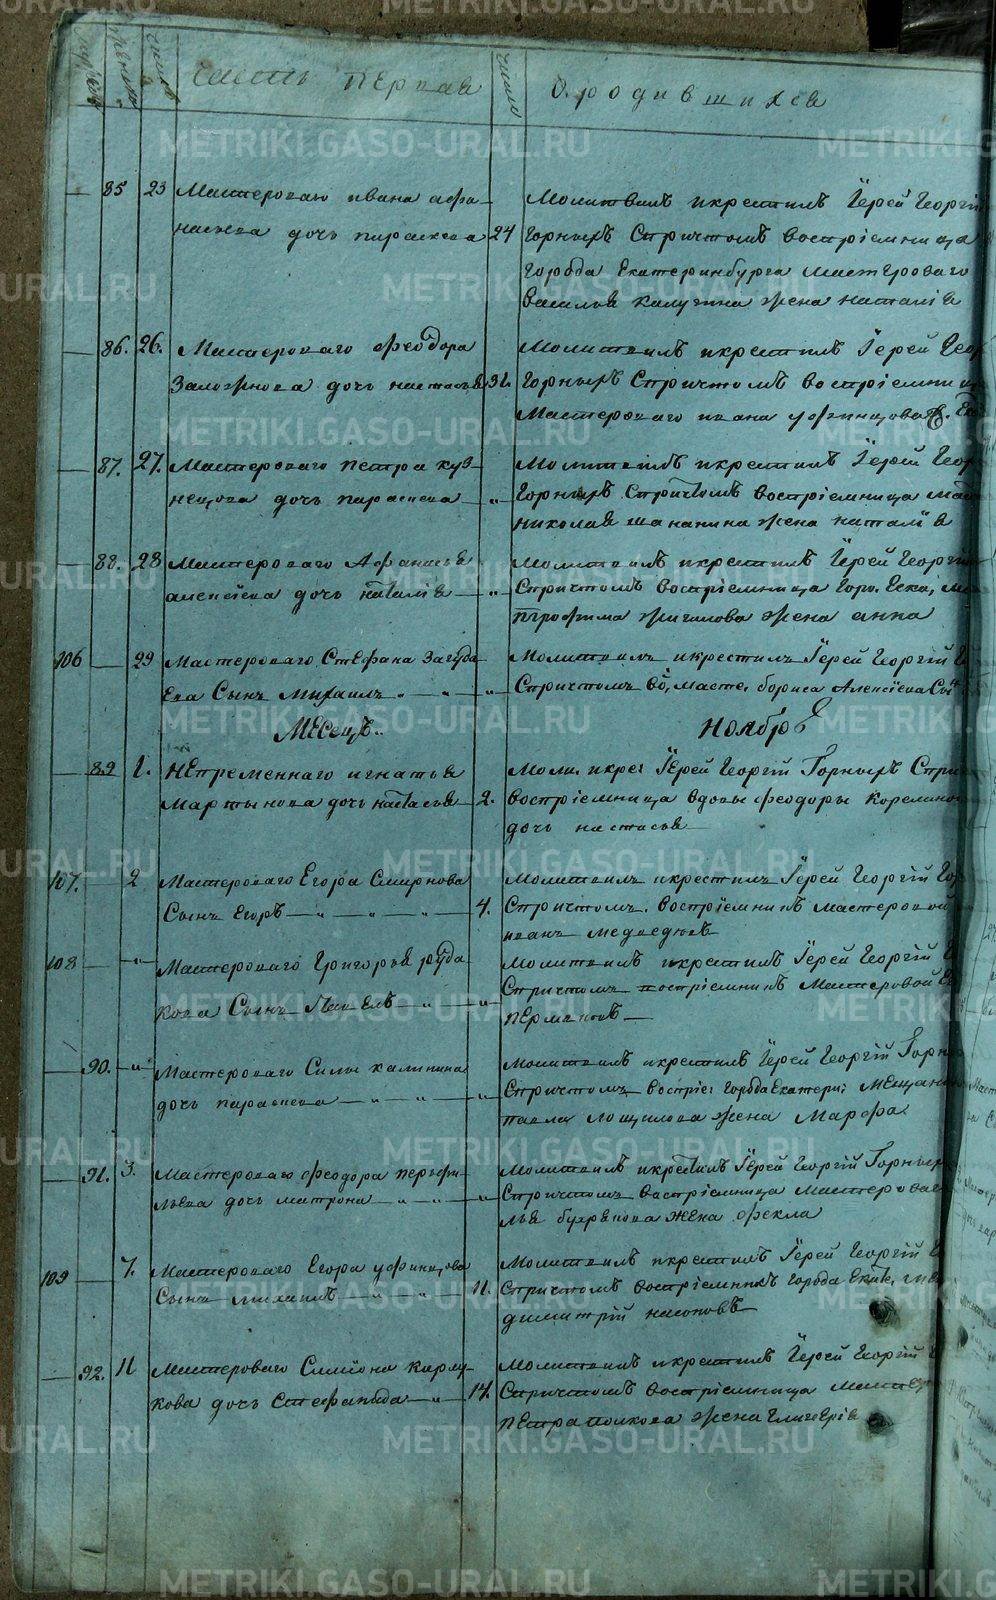 METRIKI.GASO-URAL.RU
Часть первая
число
О родившихся
85 23 Мастероваго ивана афа-
насьева дочь параскева 24
Молитвилъ икрестилъ Їерей Георгій
Горныхъ Спричтомъ востріемница
Города Екатеринбурга мастероваго
василья калугина жена наталія
86. 26. Мастероваго феодора
дочь настасья 31.
Молитвилъ икрестилъ Їерей Геор
Горныхъ Спричтомъ востріемниц
Мастероваго ивана уфинцова
87. 27. Мастероваго петра куз-
нецова дочь параскева „
Молитвилъ икрестилъ Їерей Геор
Горныхъ Спричтомъ востріемница Мас
николая шананина жена наталїя
88. 28 Мастероваго Афанасья
алексїева дочь наталїя „
Молитвилъ икрестилъ Їерей Георгій
Спричтомъ востріемница Горо. Екат, м
трофима жигалова жена анна
106 29 Мастероваго Стефана Загуда
ева Сынъ михаилъ „
Молитвилъ икрестилъ Їерей Георгій
Спричтомъ Во, масте. бориса Алексїева Сы
Месецъ.. ноябрь
89 1. непременнаго игнатья
мартынова дочь настасья 2.
Моли. икрес Їерей Георгій Горныхъ Спри
востріемница вдовы феодоры
дочь настасья
107. 2 Мастероваго Егора Смирнова
Сынъ Егоръ „ „ „ 4.
Молитвилъ икрестилъ Їерей Георгій Гор
Спричтомъ. востріемникъ мастеровой
иванъ медведевъ
108 „ Мастероваго Григорья руда
кова Сынъ Павелъ „ „
Молитвилъ икрестилъ Їерей Георгій
Спричтомъ востріемникъ Мастеровой
пермаковъ
90. „ Мастероваго Силы калинина
дочь параскева „ „ „
Молитвилъ икрестилъ Їерей Георгій Горн
Спричтомъ Востріе: Города Екатери: мещан
павла лощилова жена Марфа
91. 3. Мастероваго феодора перфи-
льева дочь матрона „ „ „
Молитвилъ икрестилъ Їерей Георгій Горных
Спричтомъ востріемница мастеровa
жена фекла
109 7. Мастероваго Егора уфинцова
Сынъ михаилъ „ „ 11.
Молитвилъ икрестилъ Їерей Георгій Г
Спричтомъ востріемникъ города Екате,
димитрій насоновъ
92. 11 Мастероваго Симіона карау-
кова дочь Стефанида „ 14.
Молитвилъ икрестилъ Їерей Георгій
Спричтомъ востріемница мастер
петра попкова жена Гликерія